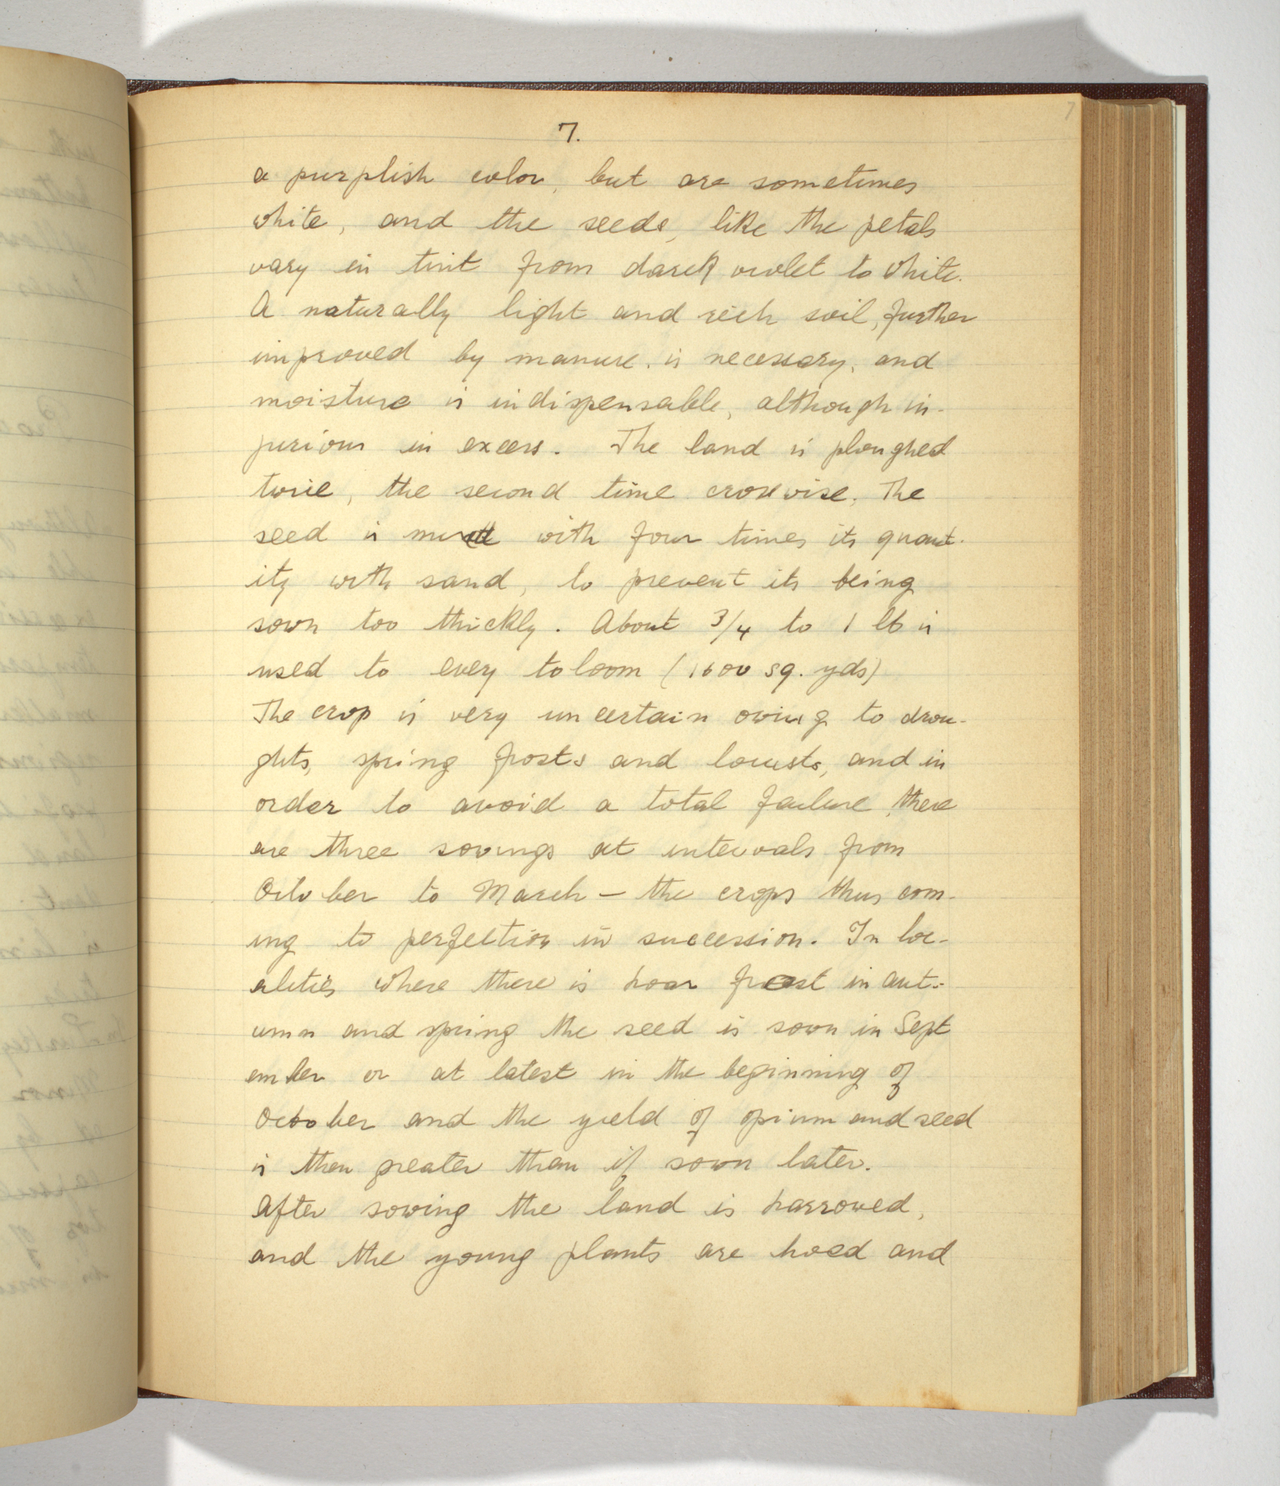 7
7.
a purplish color, but are sometimes
white, and the seeds, like the petals
vary in tint from dark violet to white.
A naturally light and rich soil, further
improved by manure, is necessary, and
moisture is indispensable, although in-
jurious in excess. The land is ploughed
twice, the second time crosswise. The
seed is mixed with four times its quant-
ity with sand, to prevent its being
sown too thickly. About 3/4 to 1 lb is
used to every toloom (1600 sq. yds)
The crop is very uncertain owing to drou-
ghts, spring frosts and locusts, and in
order to avoid a total failure there
are three sowings at intervals from
October to March — the crops thus com-
ing to perfection in succession. In loc-
alities where there is hoar frost in aut-
umn and spring the seed is sown in Sept
ember or at latest in the beginning of
October and the yield of opium and seed
is then greater than if sown later.
After sowing the land is harrowed,
and the young plants are hoed and